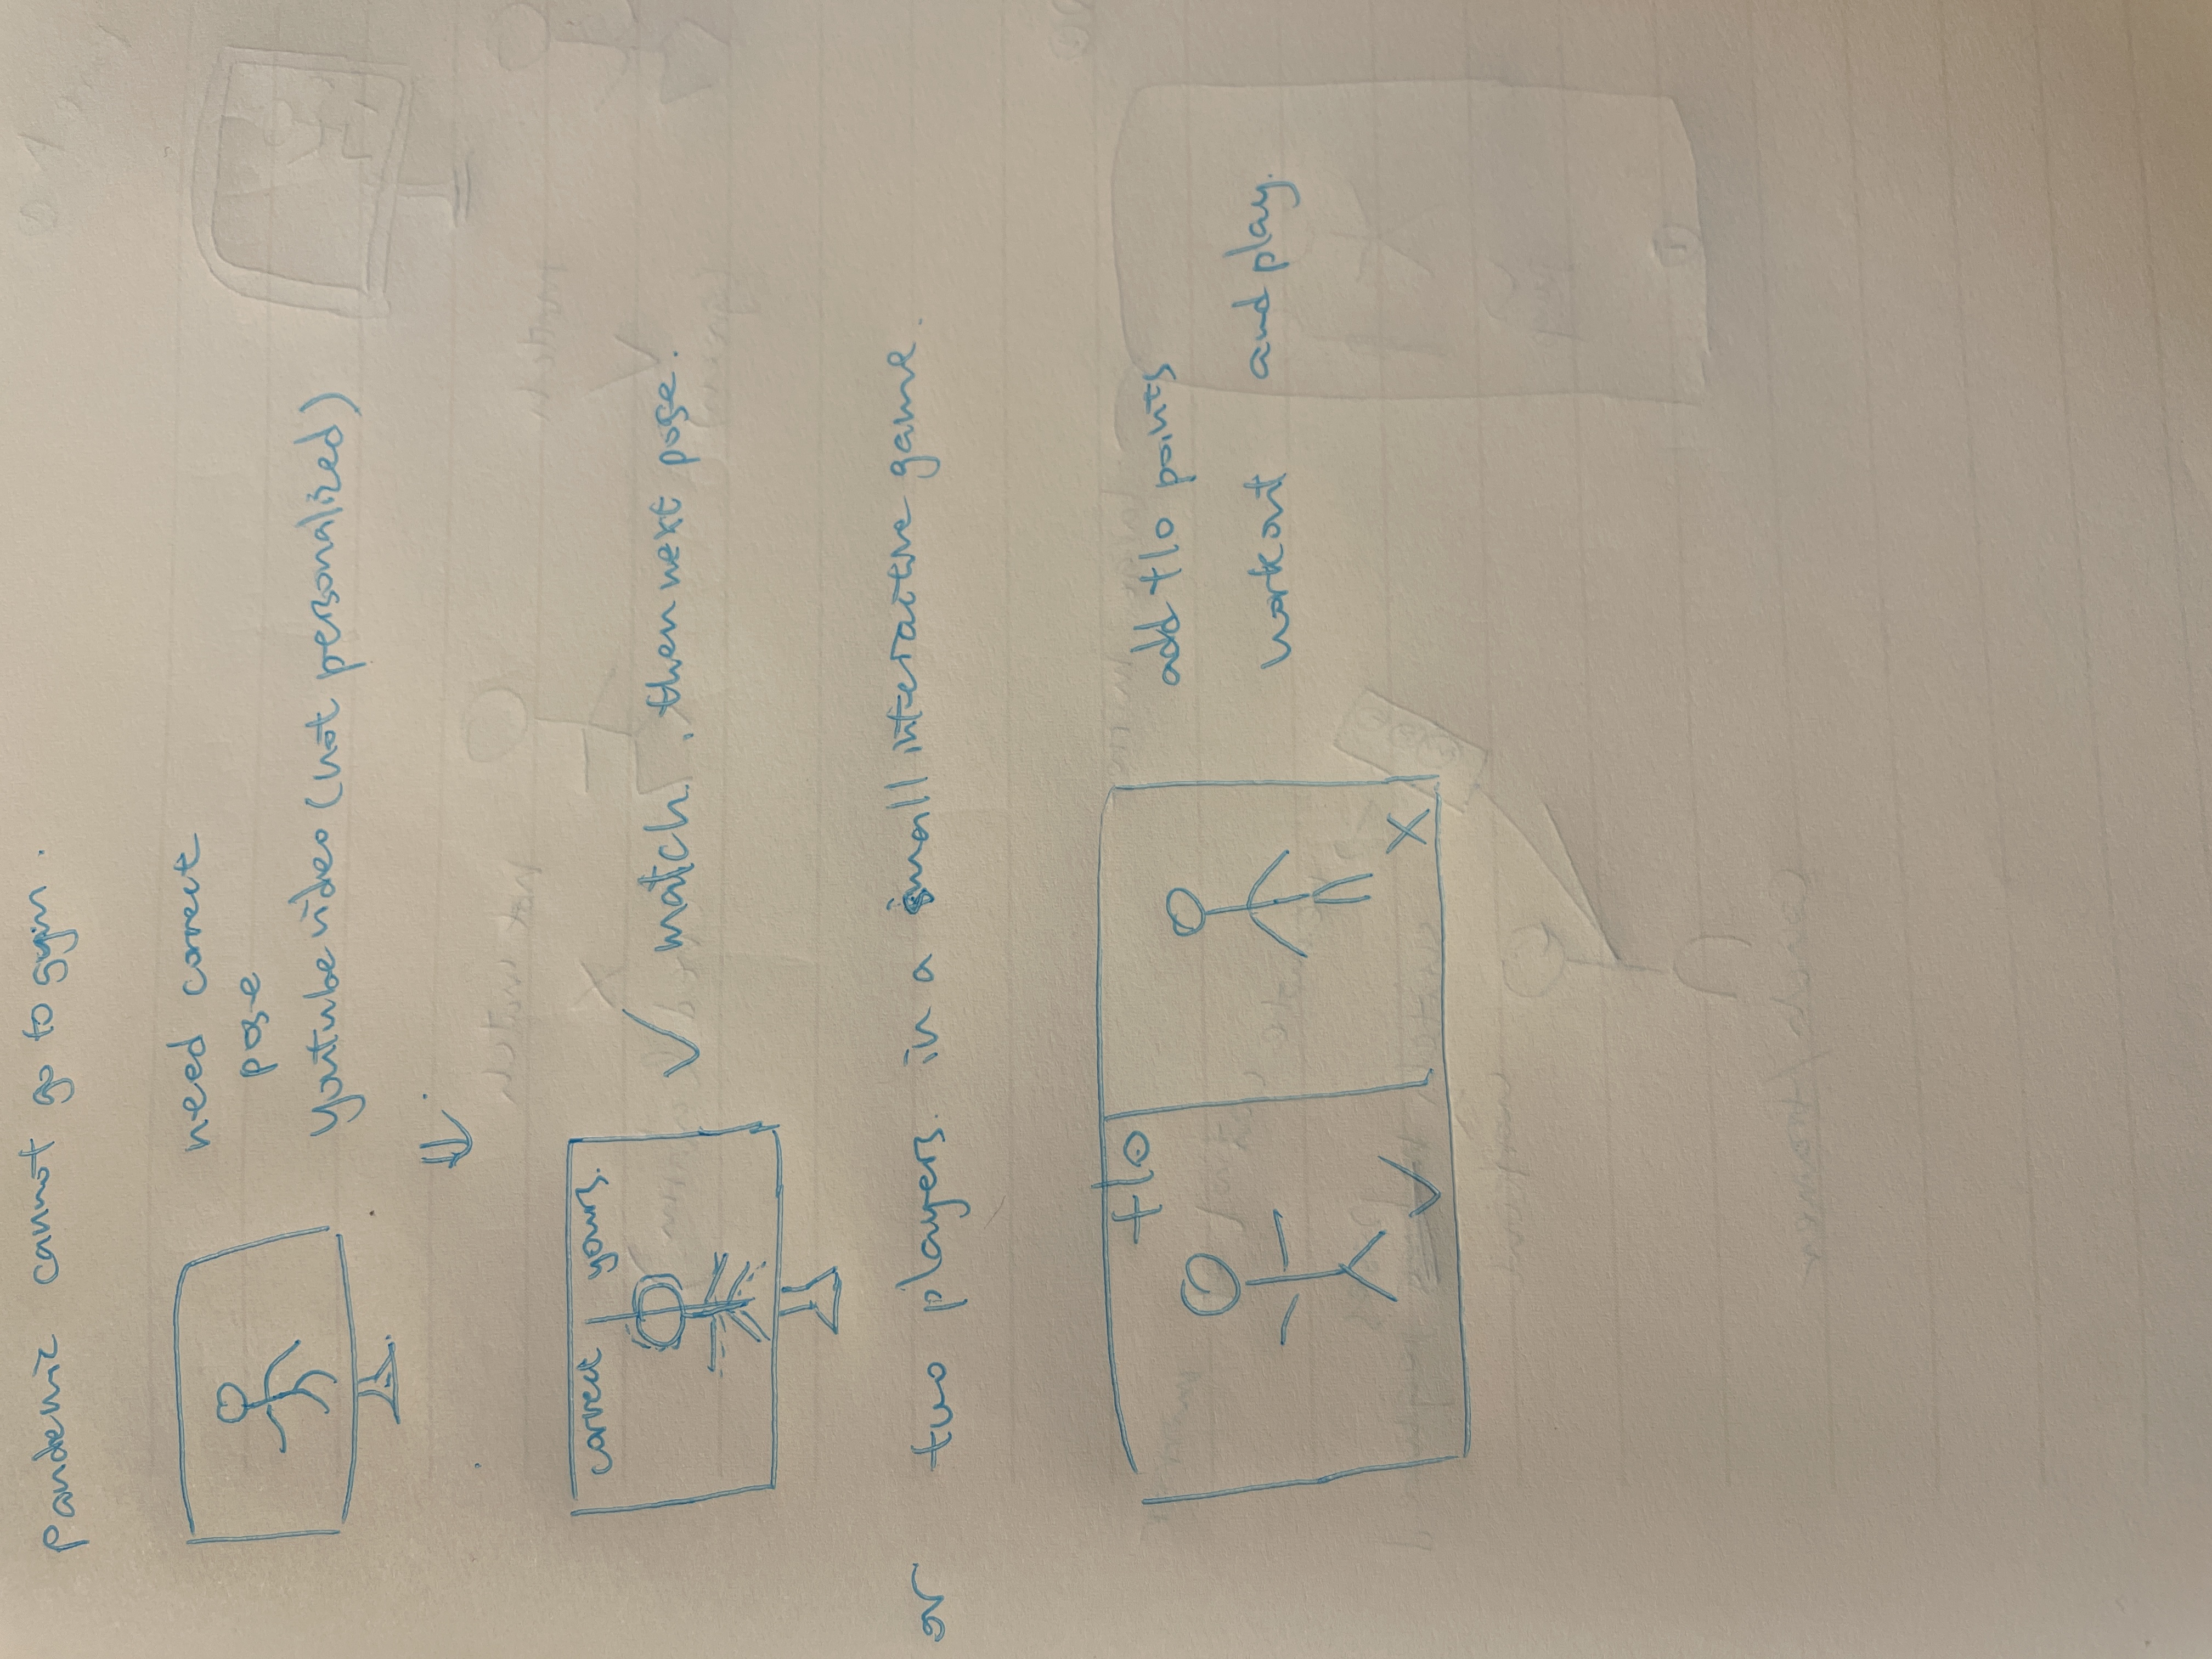 Pandemic cannot go to gym.
need correct
pose
Youtube video (not personalized)
correct yours.
match, then next pose.
or two players. in a small interactive game.
+10
add +10 points
workout and play.